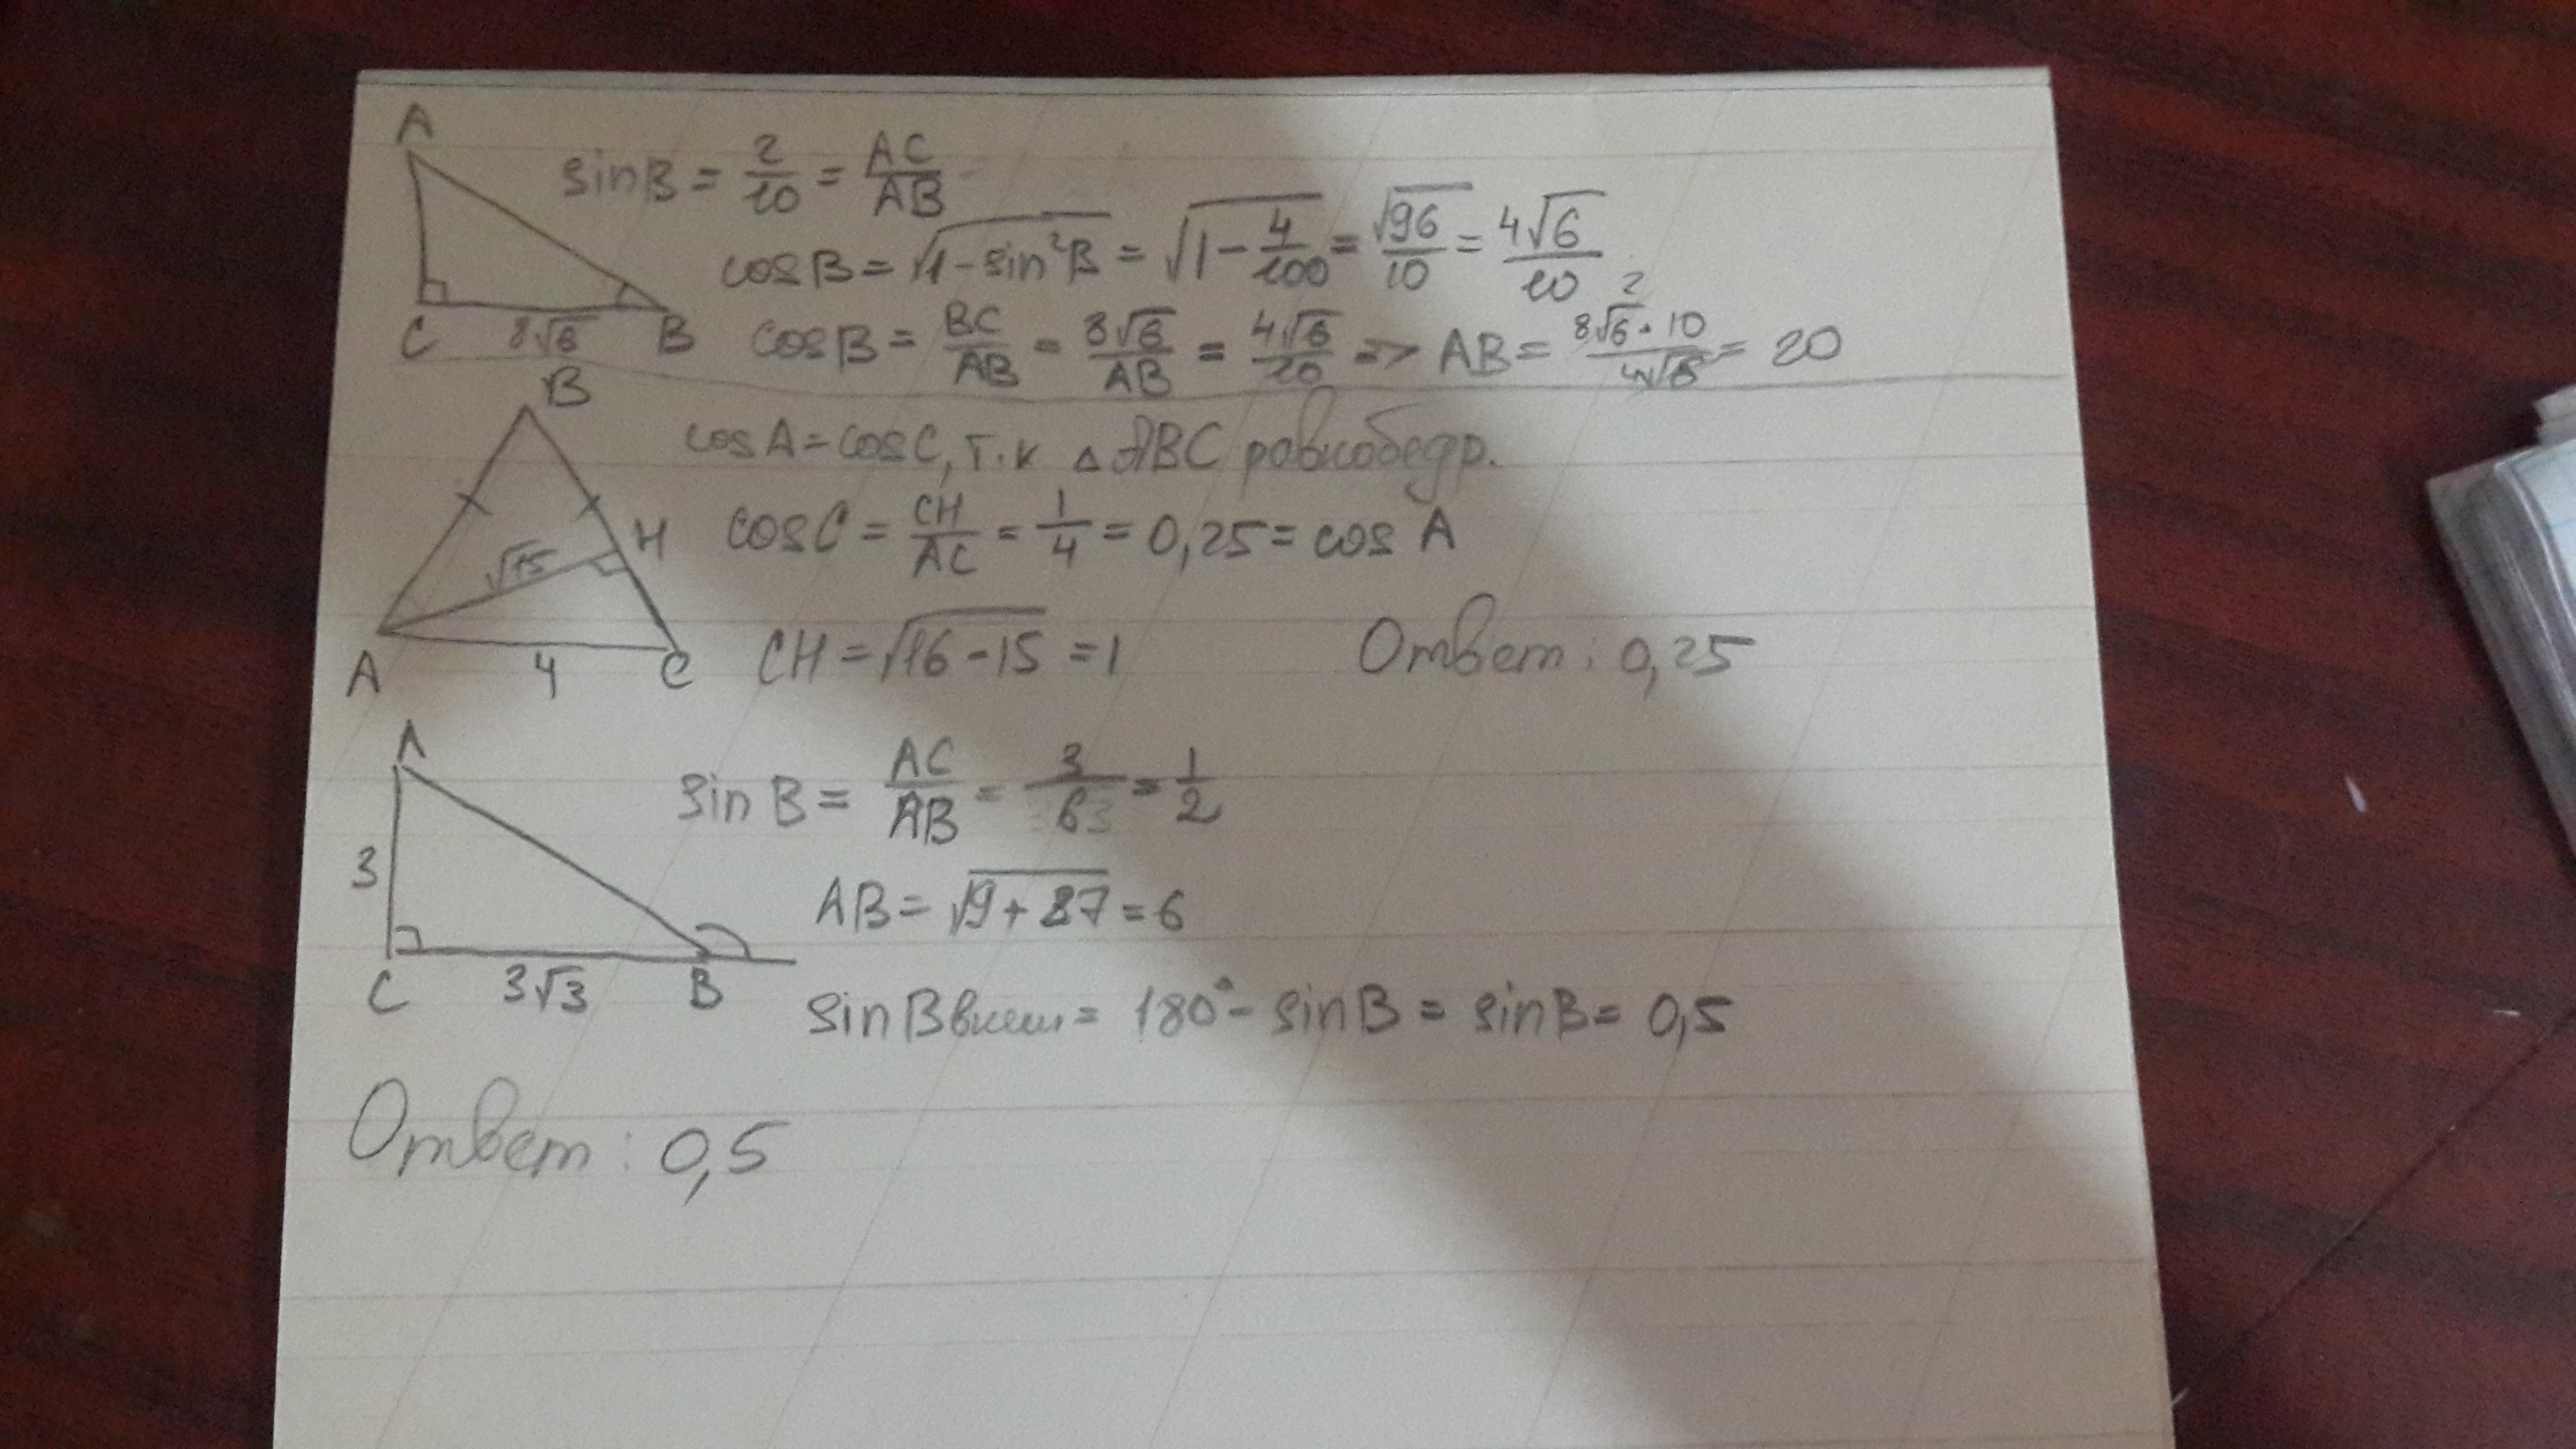 A
sinB = 2/10 = AC/AB
cosB = √(1-sin²B) = √(1 - 4/100) = √96/10 = 4√6/10
C 8√6 B
cosB = BC/AB = 8√6/AB = 4√6/10 => AB = 8√6 · 10/4√6 = 20
2
B
cosA = cosC, т.к △ABC равнобедр.
cosC = CH/AC = 1/4 = 0,25 = cos A
√15 H
A 4 C
CH = √(16-15) = 1
Ответ: 0,25
A
sin B = AC/AB = 3/6 = 1/2
3
AB = √(9+27) = 6
C 3√3 B
sinBвнеш = 180° - sinB = sinB = 0,5
Ответ: 0,5